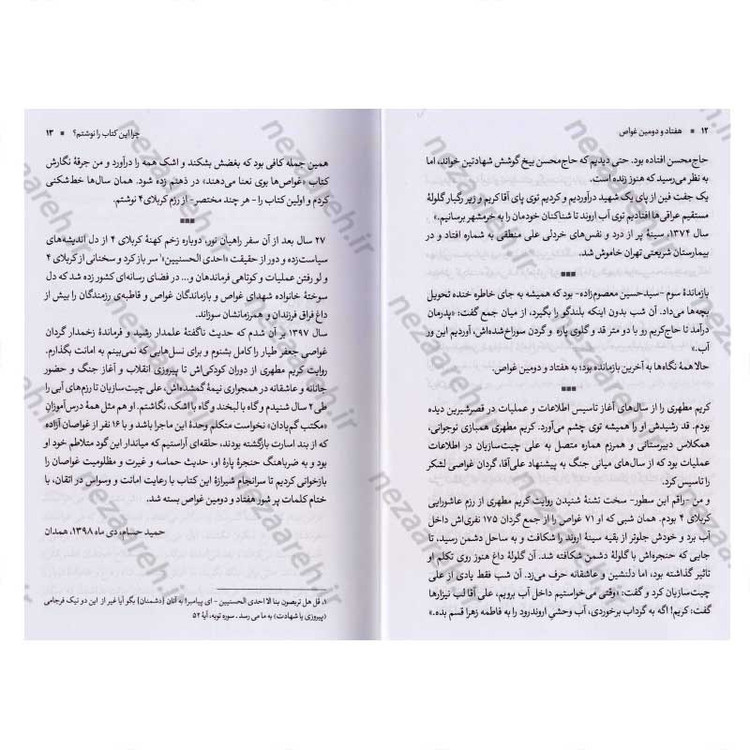 ۱۲ ■ هفتاد و دومین غواص
حاج‌محسن افتاده بود. حتی دیدیم که حاج‌محسن بیخ گوشش شهادتین خواند، اما
به نظر می‌رسید که هنوز زنده است.
یک جفت فین از پای یک شهید درآوردیم و کردیم توی پای آقاکریم و زیر رگبار گلولهٔ
مستقیم عراقی‌ها افتادیم توی آب اروند تا شناکنان خودمان را به خرمشهر برسانیم.»
سال ۱۳۷۴، سینهٔ پر از درد و نفس‌های خردلی علی منطقی به شماره افتاد و در
بیمارستان شریعتی تهران خاموش شد.
■■■
بازماندهٔ سوم -سیدحسین معصوم‌زاده- بود که همیشه به جای خاطره خنده تحویل
بچه‌ها می‌داد. آن شب بدون اینکه بلندگو را بگیرد، از میان جمع گفت: «پدرمان
درآمد تا حاج‌کریم رو با دو متر قد و گلوی پاره و گردن سوراخ‌شده‌اش، آوردیم این ور
آب.»
حالا همهٔ نگاه‌ها به آخرین بازمانده بود؛ به هفتاد و دومین غواص.
■■■
کریم مطهری را از سال‌های آغاز تاسیس اطلاعات و عملیات در قصرشیرین دیده
بودم. قد رشیدش او را همیشه توی چشم می‌آورد. کریم مطهری همبازی نوجوانی،
همکلاس دبیرستانی و همرزم همراه متصل به علی چیت‌سازیان در اطلاعات
عملیات بود که از سال‌های میانی جنگ به پیشنهاد علی‌آقا، گردان غواصی لشکر
را تاسیس کرد.
و من -راقم این سطور- سخت تشنهٔ شنیدن روایت کریم مطهری از رزم عاشورایی
کربلای ۴ بودم. همان شبی که او ۷۱ غواص را از جمع گردان ۱۷۵ نفری‌اش داخل
آب برد و خودش جلوتر از بقیه سینهٔ اروند را شکافت و به ساحل دشمن رسید، تا
جایی که حنجره‌اش با گلولهٔ دشمن شکافته شد. آن گلولهٔ داغ هنوز روی تکلم او
تاثیر گذاشته بود، اما دلنشین و عاشقانه حرف می‌زد. آن شب فقط یادی از علی
چیت‌سازیان کرد و گفت: «وقتی می‌خواستیم داخل آب برویم، علی آقا لب نیزارها
گفت: کریم! اگه به گرداب برخوردی، آب وحشیِ اروندرود را به فاطمه زهرا قسم بده.»
چرا این کتاب را نوشتم؟ ■ ۱۳
همین جمله کافی بود که بغضش بشکند و اشک همه را درآورد و من جرقهٔ نگارش
کتاب «غواص‌ها بوی نعنا می‌دهند» در ذهنم زده شود. همان سال‌ها خط‌شکنی
کردم و اولین کتاب را - هر چند مختصر- از رزم کربلای ۴ نوشتم.
■■■
۲۷ سال بعد از آن سفر راهیان نور، دوباره زخم کهنهٔ کربلای ۴ از دل اندیشه‌های
سیاست‌زده و دور از حقیقت «احدی الحسنیین»۱ سر باز کرد و سخنانی از کربلای ۴
و لو رفتن عملیات و کوتاهی فرماندهان و... در فضای رسانه‌ای کشور زده شد که دل
سوختهٔ خانواده شهدای غواص و بازماندگان غواص و قاطبه‌ی رزمندگان را بیش از
داغ فراق فرزندان و همرزمانشان سوزاند.
سال ۱۳۹۷ بر آن شدم که حدیث ناگفتهٔ علمدار رشید و فرماندهٔ زخمدار گردان
غواصی جعفر طیار را کامل بشنوم و برای نسل‌هایی که نمی‌بینم به امانت بگذارم.
روایت کریم مطهری از دوران کودکی‌اش تا پیروزی انقلاب و آغاز جنگ و حضور
جانانه و عاشقانه در همجواری نیمهٔ گمشده‌اش، علی چیت‌سازیان تا رزم‌های آبی را
طی ۲ سال شنیدم و گاه با لبخند و گاه با اشک، نگاشتم. او هم مثل همهٔ درس‌آموزانِ
«مکتب گم‌نامی» نخواست متکلم وحدهٔ این ماجرا باشد و با ۱۶ نفر از غواصان آزاده
که از بند اسارت بازگشته بودند، حلقه‌ای آراستیم که میاندار این گود متلاطم خود او
بود و به ضرباهنگ حنجرهٔ پارهٔ او، حدیث حماسه و غیرت و مظلومیت غواصان را
بازخوانی کردیم تا سرانجام شیرازهٔ این کتاب با رعایت امانت و وسواس در اتقان، با
ختام کلمات پر شور هفتاد و دومین غواص بسته شد.
حمید حسام، دی ماه ۱۳۹۸، همدان
۱. قل هل تربصون بنا الا احدی الحسنیین - ای پیامبر! به آنان (دشمنان) بگو آیا غیر از این دو نیک فرجامی
(پیروزی یا شهادت) به ما می رسد. سوره توبه، آیهٔ ۵۲
nezaareh.ir